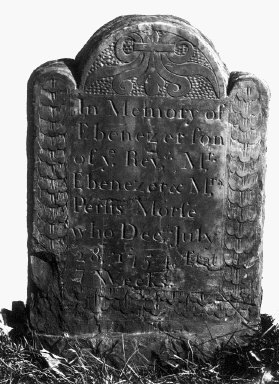 In Memory of
Ebenezer ſon
of yᵉ Revᵈ Mʳ
Ebenezer & Mʳˢ
Perſis Morſe
who Decd July
28
7 Weeks